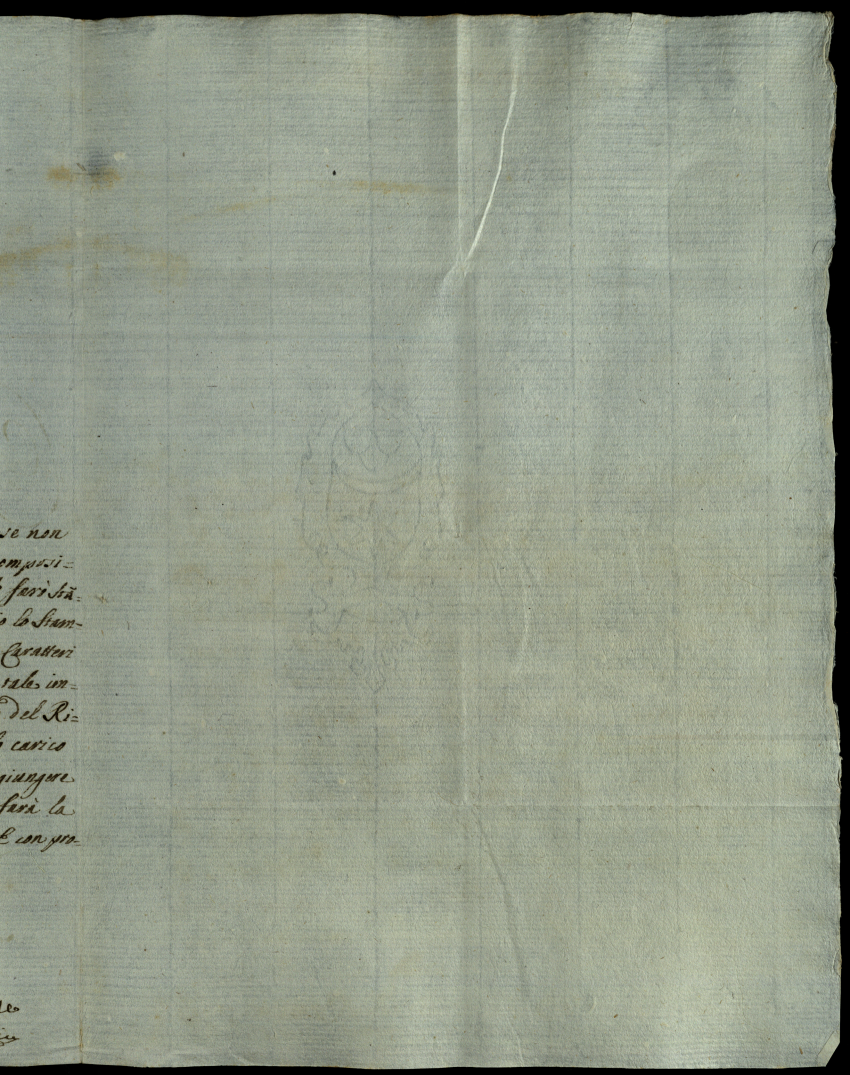 se non
omposi=
farò stã=
lo Stam-
Caratteri
tale im=
del Ri=
carico
giungere
farà la
E con pro-